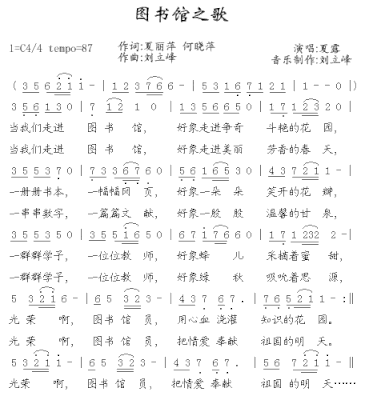 图书馆之歌
1=C4/4 tempo=87 作词:夏丽萍 何晓萍 演唱:夏露
作曲:刘立峰 音乐制作:刘立峰
( 3 5 6 2 1 1 - | 1 2 3 7 6 6 - | 5 3 1 6 7 1 2 1 | 1 - - 0 ) |
3 5 6 1 3 0 | 7 1 2 1 0 | 1 3 5 6 6 5 0 | 1 7 1 2 3 2 0 |
当我们走进 图 书 馆, 好象走进争奇 斗艳的花 园,
当我们走进 图 书 馆, 好象走进美丽 芳香的春 天,
3 5 5 3 5 0 | 7 3 3 6 7 6 0 | 5 6 1 6 5 0 | 4 3 7 2 1 1 - |
一册册书本, 一幅幅网 页, 好象一朵 朵 笑开的花 瓣,
一串串数字, 一篇篇文 献, 好象一股 股 温馨的甘 泉,
3 5 5 3 5 0 | 3 5 5 1 6 5 0 | 6 7 1 7 6 6 0 | 1 7 1 2 3 2 2 - |
一群群学子, 一位位教 师, 好象蜂 儿 采摘着蜜 甜,
一群群学子, 一位位教 师, 好象绿 秋 吸吮着思 源,
5 3 2 1 6 - | 6 5 3 2 3 - | 4 3 7 6 7 . | 7 6 5 2 1 1 - :||
光 荣 啊, 图书 馆 员, 用心血 浇灌 知识的花 园。
光 荣 啊, 图书 馆 员, 把情爱 奉献 祖国的明 天。
5 3 2 1 1 - | 6 5 3 2 3 - | 4 3 7 6 7 . | 5 6 7 2 1 1 - ||
光 荣 啊, 图书 馆 员, 把情爱 奉献 祖国 的明 天……